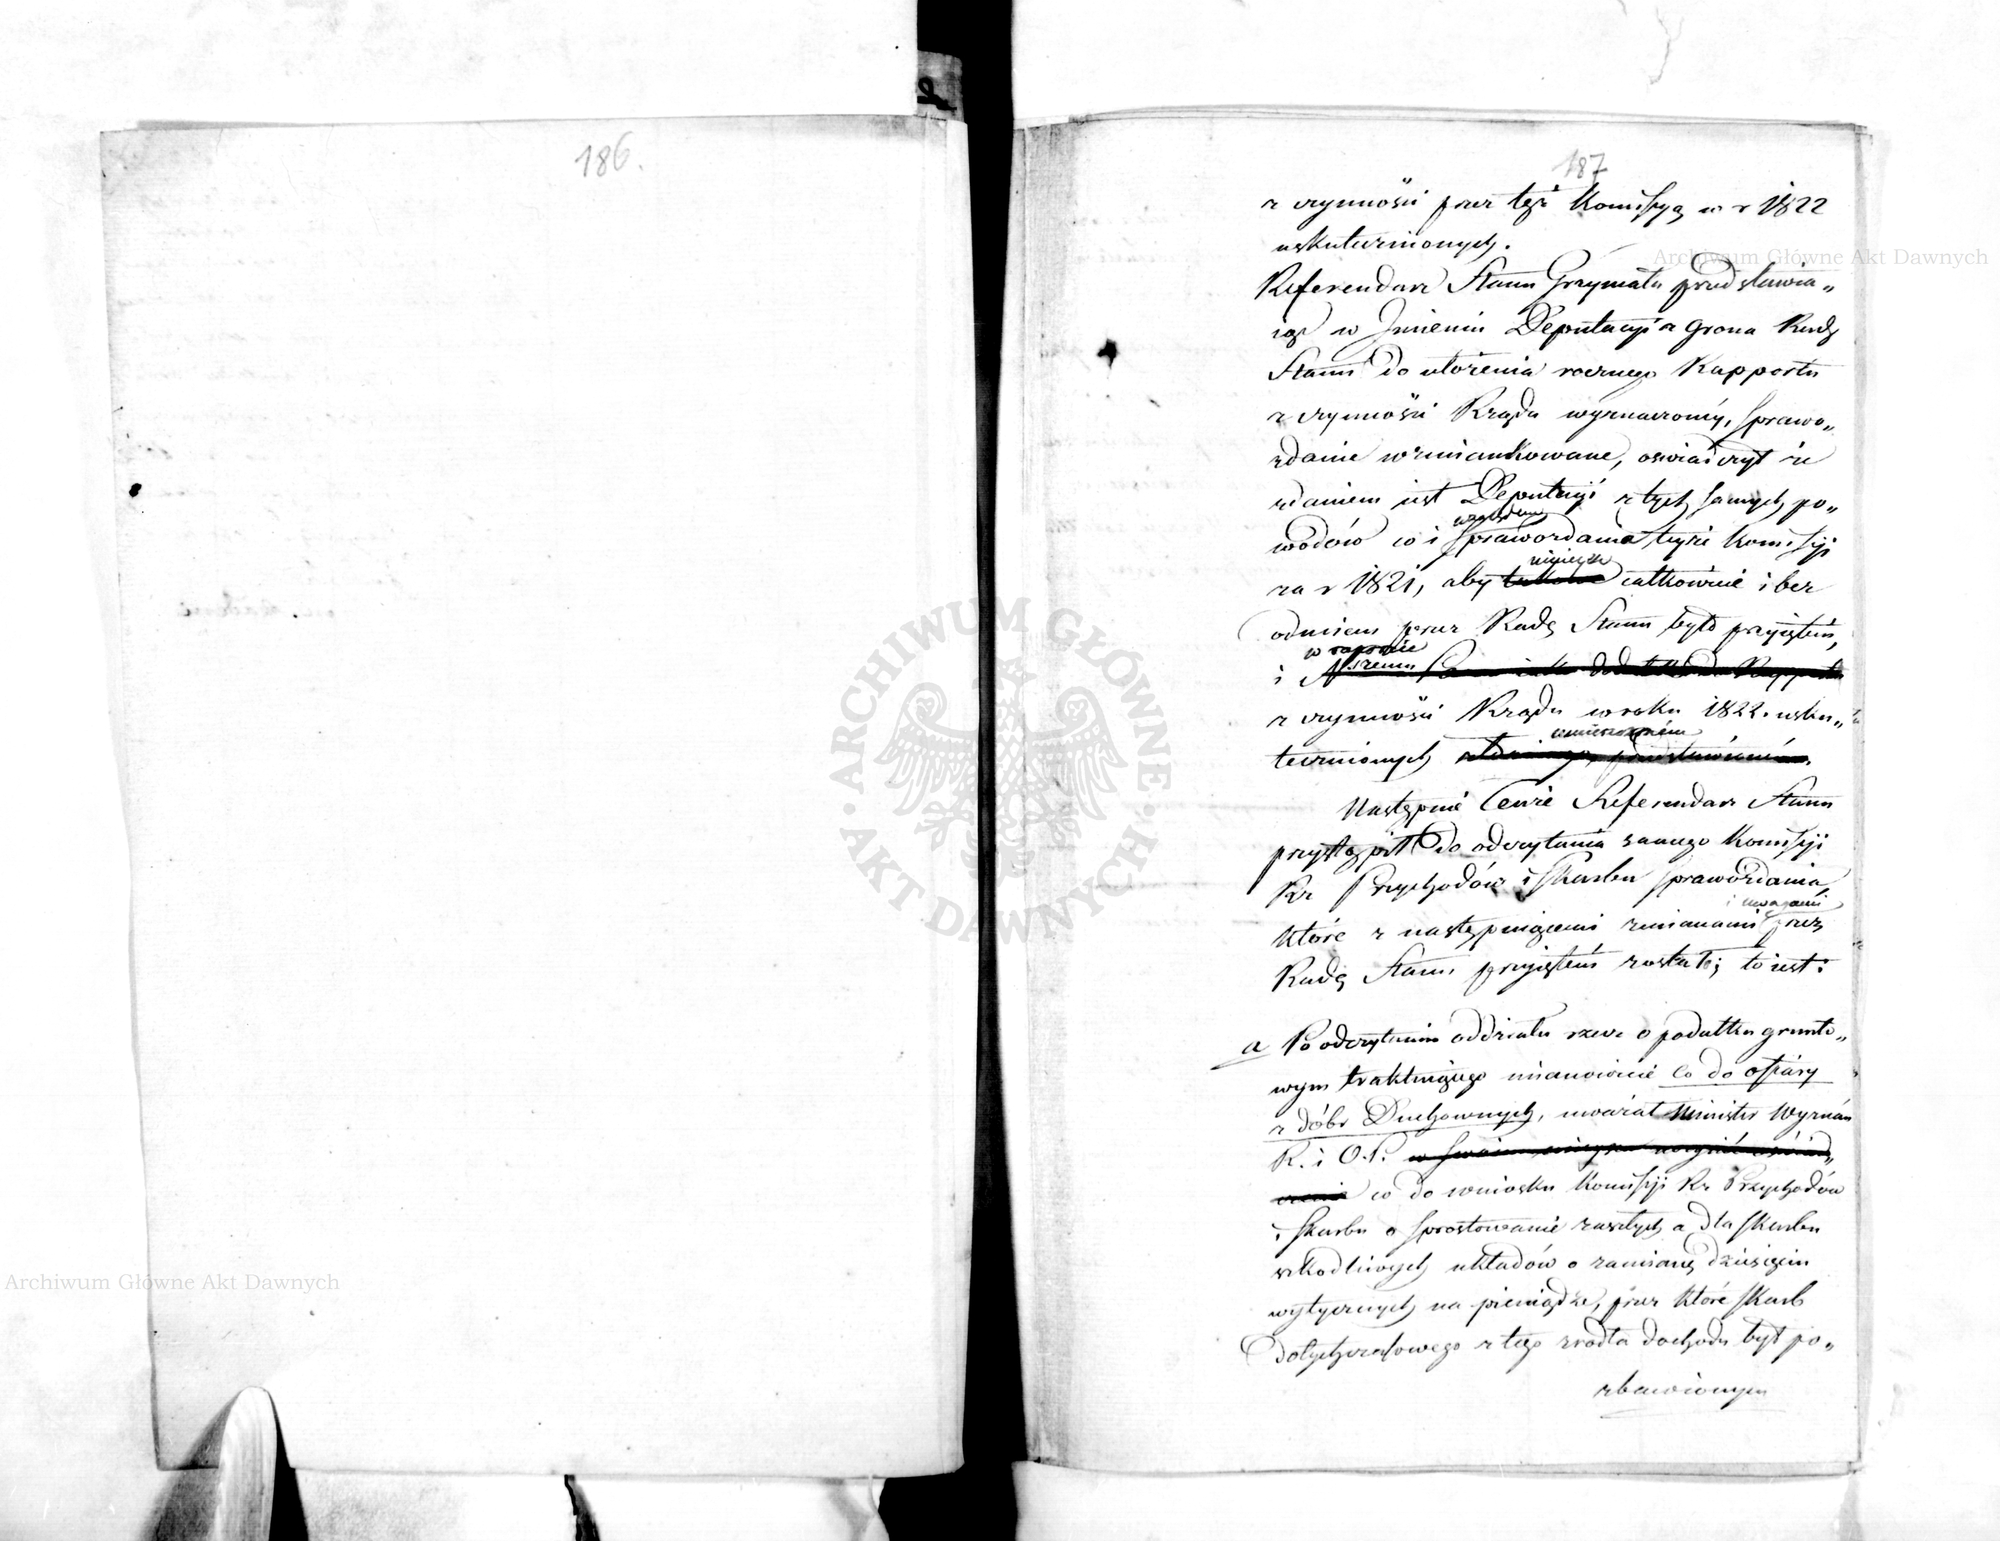 186.
187
z czynności przez tęż Kommissyą w r 1822
uskutecznionych.
Referendarz Stanu Grzymała przedstawia„
iąc w Jmieniu Deputacyi z Grona Rady
Stanu do ułożenia rocznego Rapportu
z czynności Rządu wyznaczonéy, Sprawo„
zdanie wzmiankowane, oswiadczył że
zdaniem iest Deputacyi z tych samych po„
wodów co i względem Sprawozdania teyże Komissyi
za r 1821, aby ninieysze całkowicie i bez
odmian przez Radę Stanu było przyiętém,
i w raporcie
z czynności Rządu w roku 1822. usku„
tecznionych umieszczoném
Następnie tenże Referendarz Stanu
przystąpił do odczytania samego Komissyi
Rz Przychodów i Skarbu Sprawozdania,
które z następuiącemi zmianami i uwagami przez
Radę Stanu przyiętém zostało; to iest:
a Po odczytaniu oddziału rzecz o podatku grunto„
wym traktuiącego mianowicie co do ofiary
z dóbr Duchownych, uważał Minister Wyznań
R. i O. P.
co do wniosku Komissyi Rz Przychodów
i Skarbu o sprostowanie zaszłych a dla Skarbu
szkodliwych układów o zamianę dziesięcin
wytycznych na pieniądze, przez które Skarb
dotychczasowego z tego źrodła dochodu był po„
zbawionym
Archiwum Główne Akt Dawnych
Archiwum Główne Akt Dawnych
ARCHIWUM GŁÓWNE · AKT DAWNYCH ·